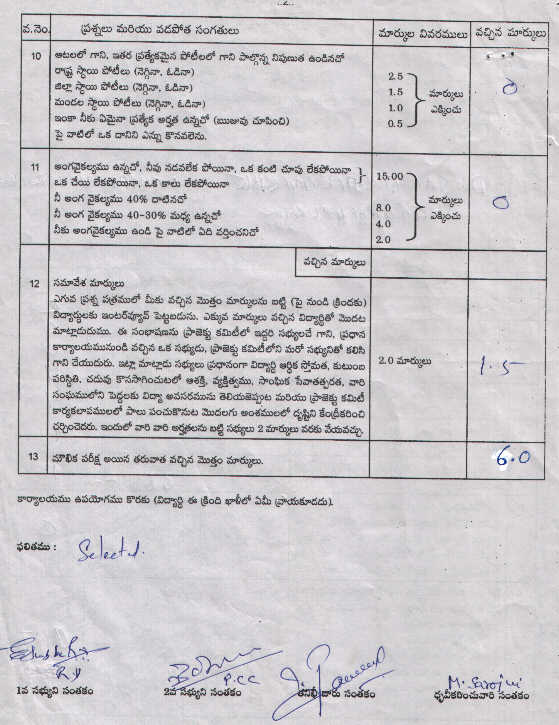 ..2..
వ.నెం. ప్రశ్నలు మరియు వడపోత సంగతులు మార్కుల వివరములు వచ్చిన మార్కులు
10 ఆటలలో గాని, ఇతర ప్రత్యేకమైన పోటీలలో గాని పాల్గొన్న నిపుణత ఉండినచో
రాష్ట్ర స్థాయి పోటీలు (నెగ్గినా, ఓడినా) 2.5
జిల్లా స్థాయి పోటీలు (నెగ్గినా, ఓడినా) 1.5 మార్కులు 0
మండల స్థాయి పోటీలు (నెగ్గినా, ఓడినా) 1.0 ఎక్కించు
ఇంకా నీకు ఏమైనా ప్రత్యేక అర్హత ఉన్నచో (ఋజువు చూపించి) 0.5
పై వాటిలో ఒక దానిని ఎన్ను కొనవలెను.
11 అంగవైకల్యము ఉన్నచో, నీవు నడవలేక పోయినా, ఒక కంటి చూపు లేకపోయినా
ఒక చేయి లేకపోయినా, ఒక కాలు లేకపోయినా 15.00
నీ అంగ వైకల్యము 40% దాటినచో మార్కులు 0
నీ అంగ వైకల్యము 40-30% మధ్య ఉన్నచో 8.0 ఎక్కించు
నీకు అంగవైకల్యము ఉండి పై వాటిలో ఏది వర్తించనిచో 4.0
2.0
వచ్చిన మార్కులు
12 సమావేశ మార్కులు
ఎగువ ప్రశ్న పత్రములో మీకు వచ్చిన మొత్తం మార్కులను బట్టి (పై నుండి క్రిందకు)
విద్యార్థులకు ఇంటర్‌వ్యూవ్ పెట్టబడును. ఎక్కువ మార్కులు వచ్చిన విద్యార్థితో మొదట
మాట్లాడుదుము. ఈ సంభాషణను ప్రాజెక్టు కమిటీలో ఇద్దరి సభ్యులచే గాని, ప్రధాన
కార్యాలయమునుండి వచ్చిన ఒక సభ్యుడు, ప్రాజెక్టు కమిటీలోని మరో సభ్యునితో కలిసి
గాని చేయుదురు. ఇట్లా మాట్లాడు సభ్యులు ప్రధానంగా విద్యార్థి ఆర్థిక స్తోమత, కుటుంబ 2.0 మార్కులు 1.5
పరిస్థితి, చదువు కొనసాగించుటలో ఆశక్తి, వ్యక్తిత్వము, సాంఘిక సేవాతత్పరత, వారి
సంఘములోని పెద్దలకు విద్యా అవసరమును తెలియజెప్పుట మరియు ప్రాజెక్టు కమిటీ
కార్యకలాపములలో పాలు పంచుకొనుట మొదలగు అంశములలో దృష్టిని కేంద్రీకరించి
చర్చించెదరు. ఇందులో వారి వారి అర్హతలను బట్టి సభ్యులు 2 మార్కులు వరకు వేయవచ్చు.
13 మౌఖిక పరీక్ష అయిన తరువాత వచ్చిన మొత్తం మార్కులు. 6.0
కార్యాలయము ఉపయోగము కొరకు (విద్యార్థి ఈ క్రింది ఖాళీలో ఏమీ వ్రాయకూడదు).
ఫలితము : Selected.
P.CC M. Sarojini
1వ సభ్యుని సంతకం 2వ సభ్యుని సంతకం సంతకం ధృవీకరించువారి సంతకం